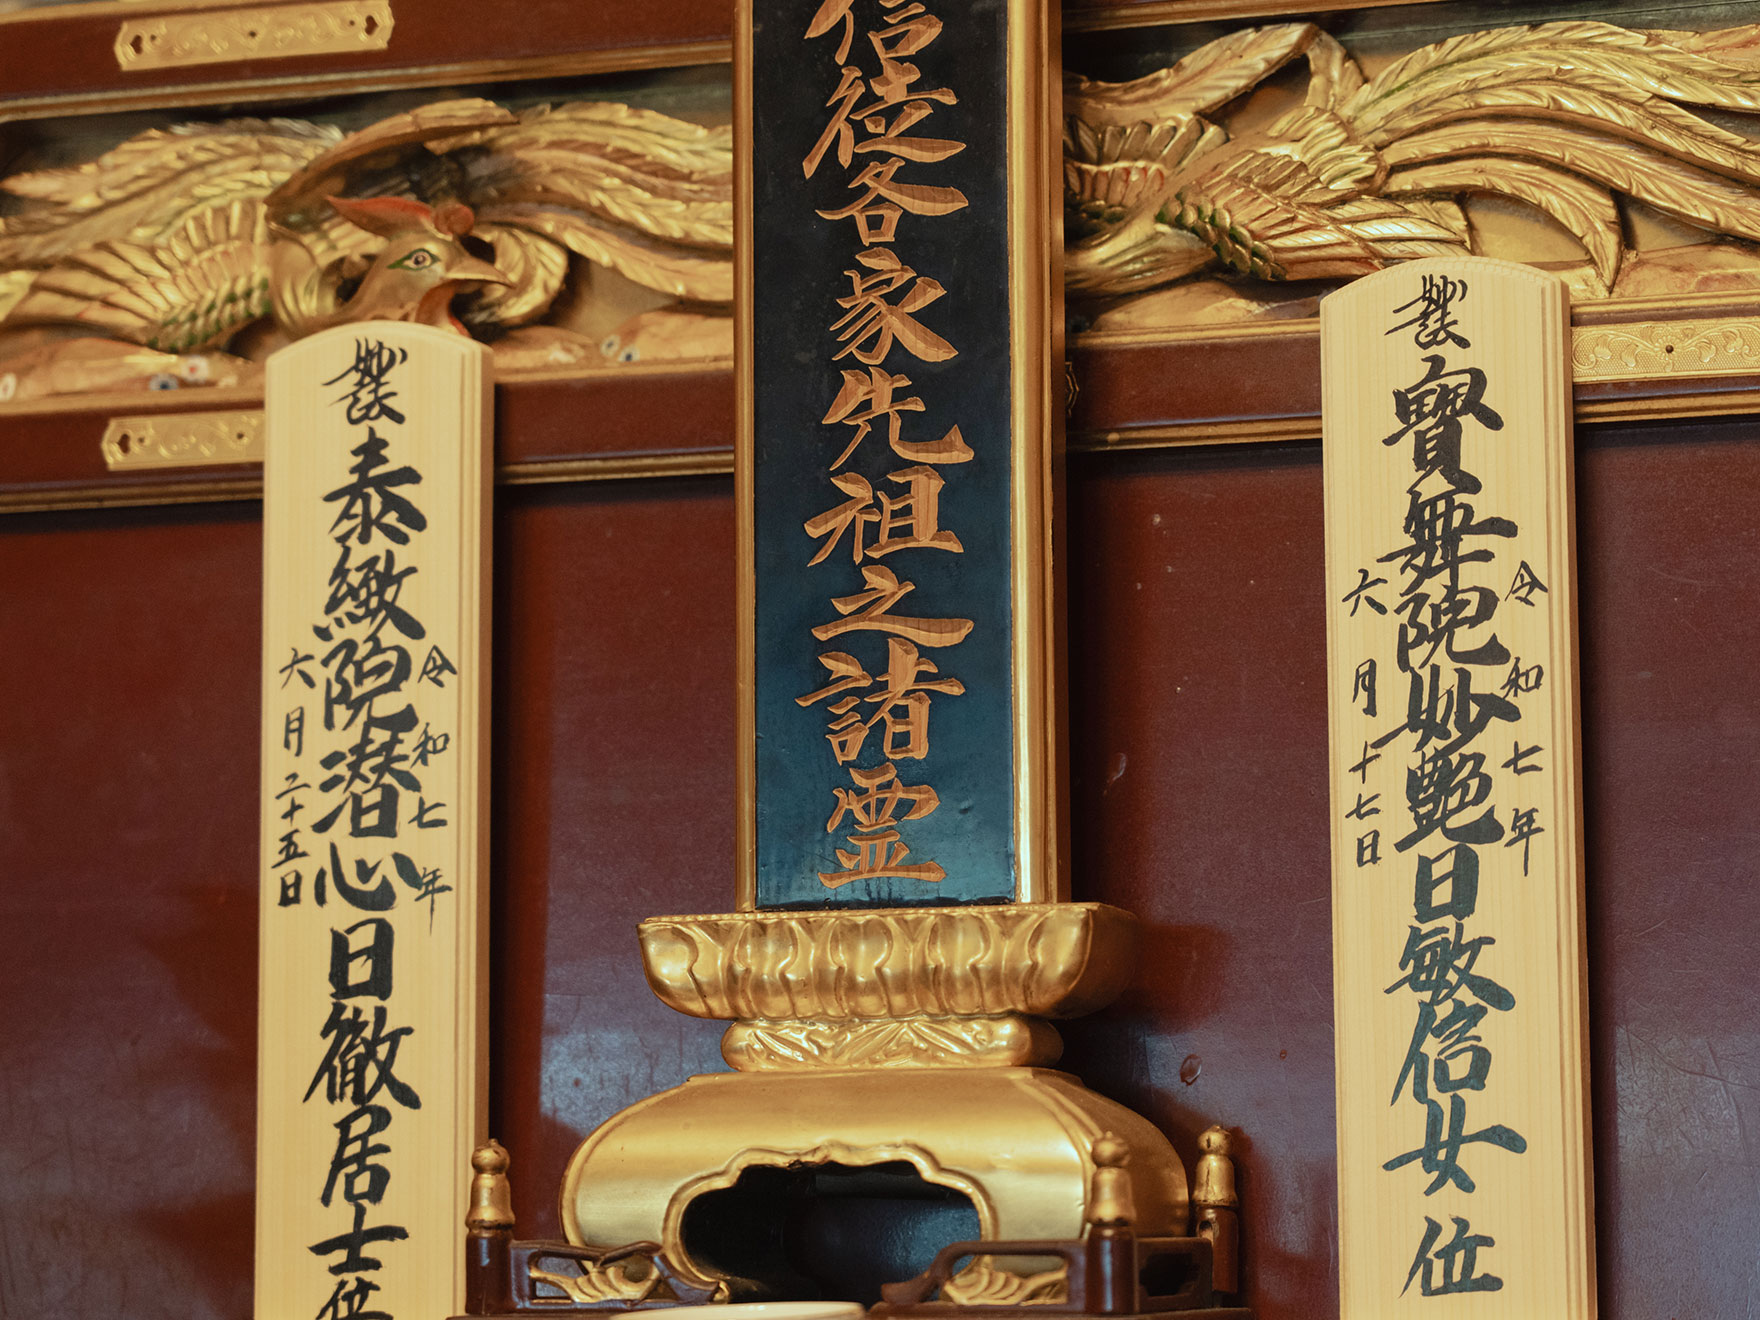 妙法 寶舞院妙艶日敏信女位
令和七年
六月十七日
信徒各家先祖之諸霊
妙法 泰緻院潜心日徹居士位
令和七年
六月二十五日